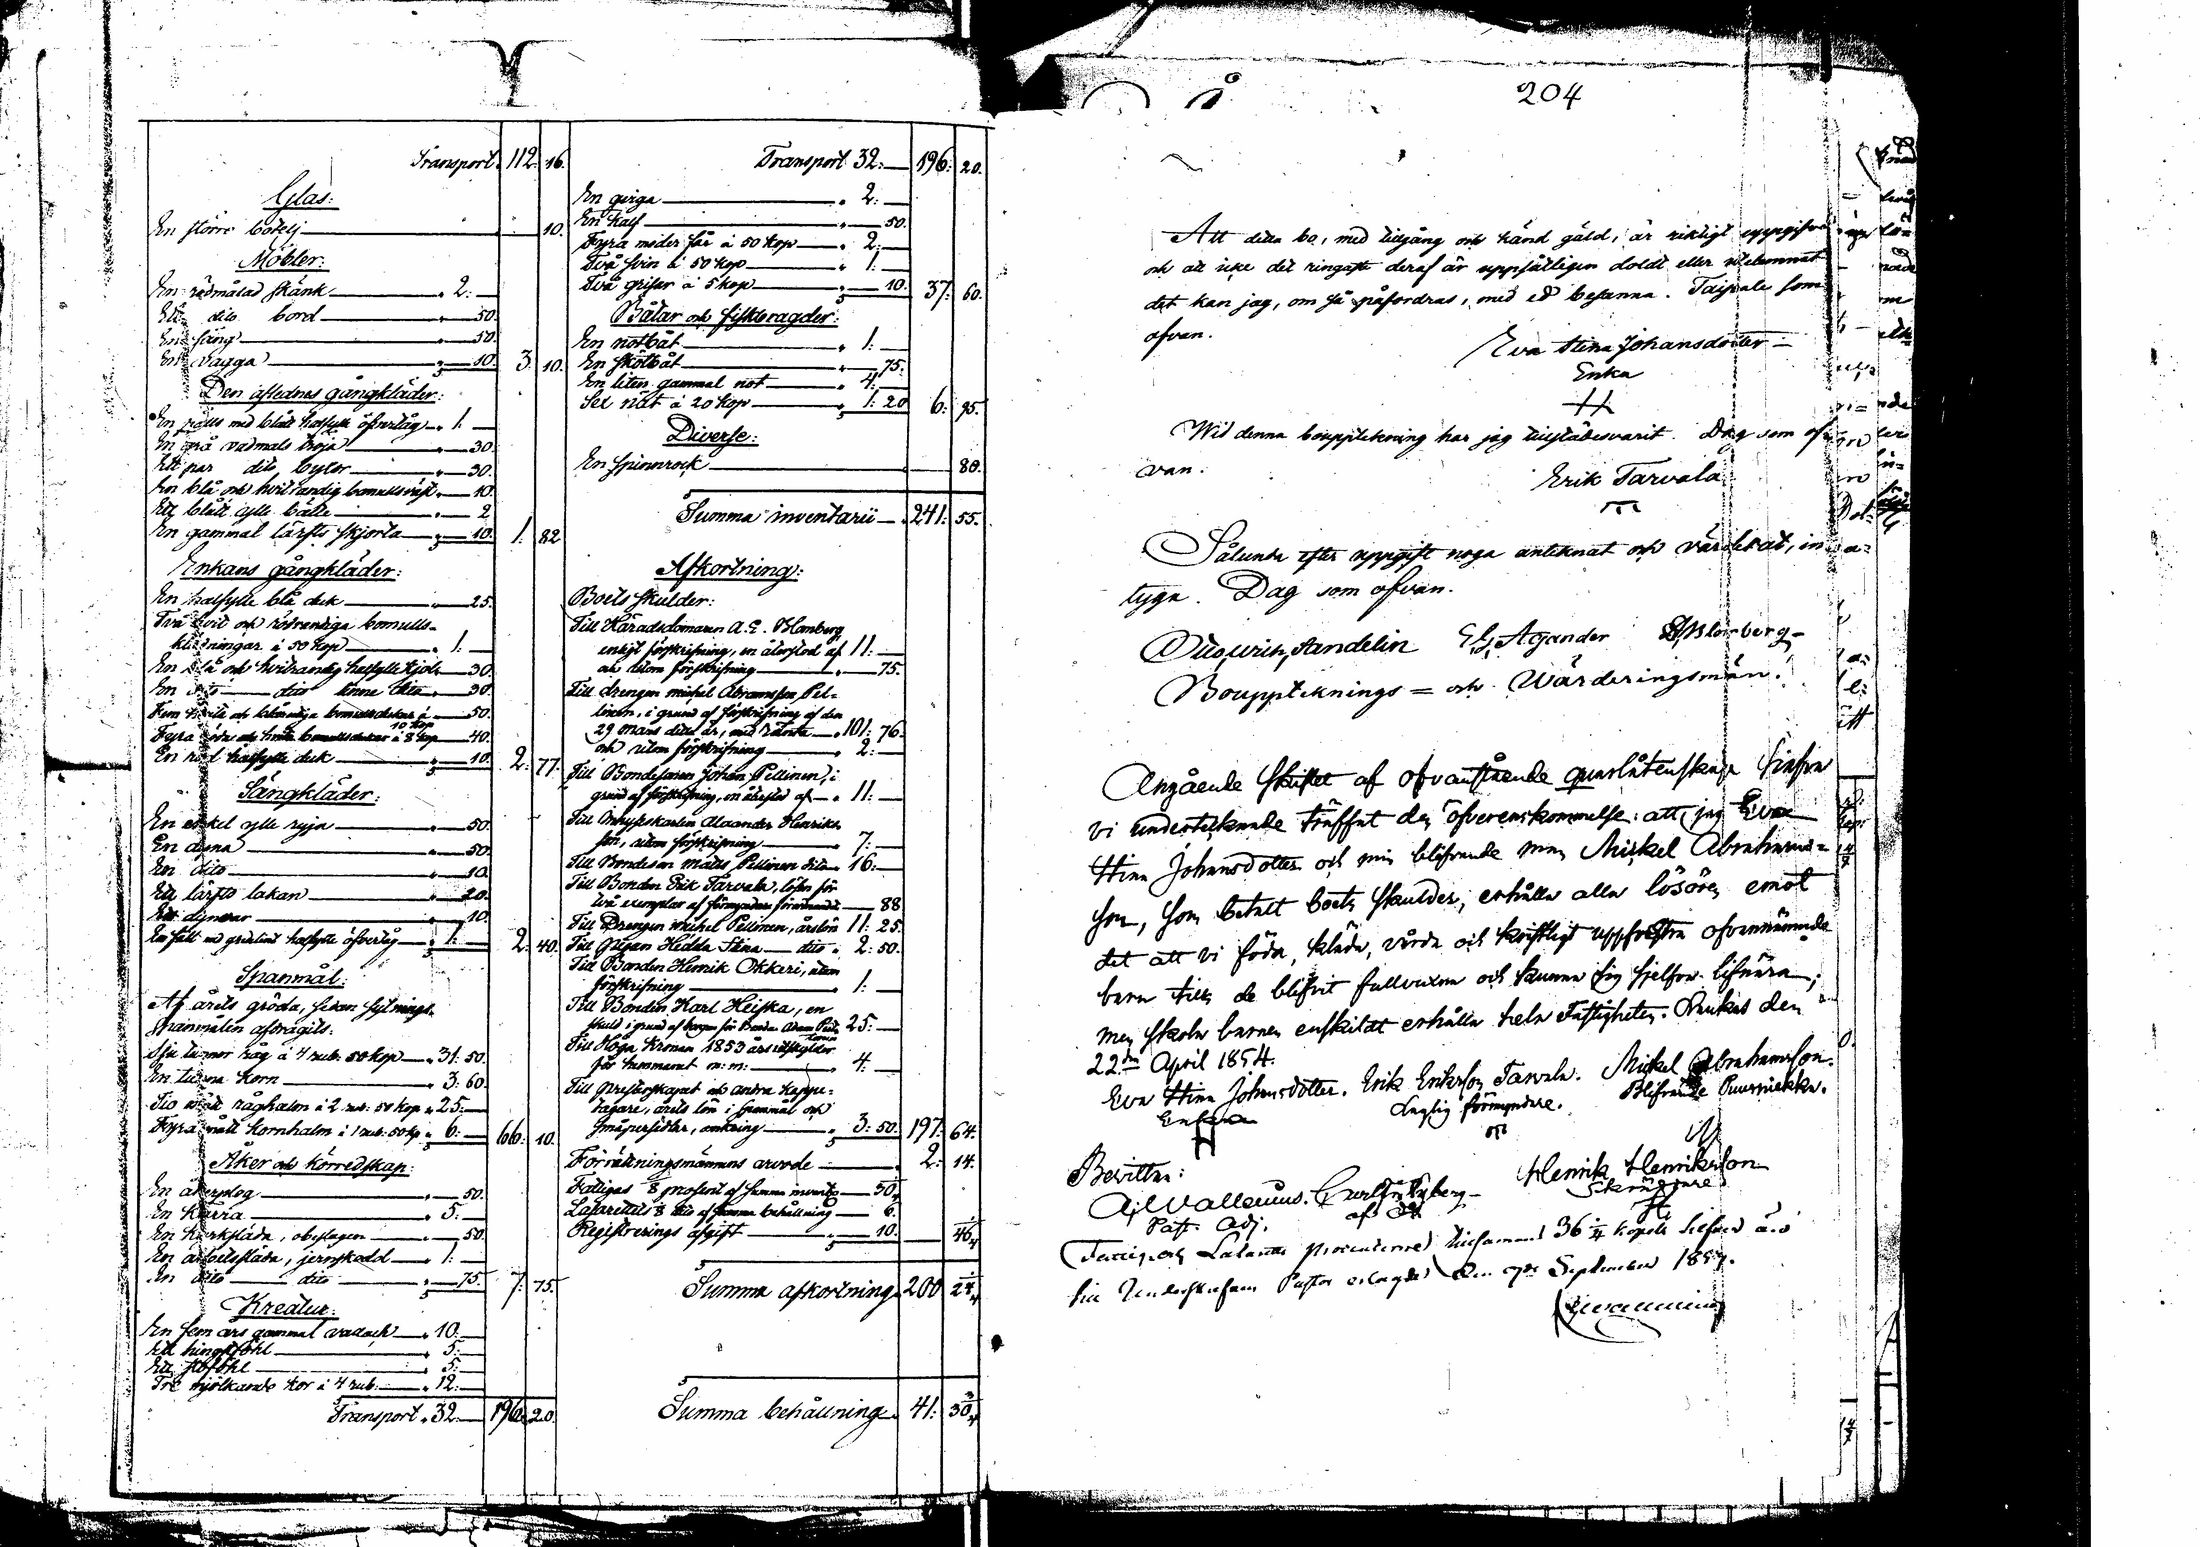 Transport. 112. 16.
Glas:
En större botelj 10.
Möbler:
En rödmålad skänk " 2.
Ett dito bord " 50.
En säng " 50.
En vagga " 10. 3. 10.
Den aflednes gångkläder:
En päls med blått halfylle öfvertåg " 1.
En grå vadmals tröja " 30.
Ett par dito byxor " 30.
En blå och hvitrandig bomullsväst " 10.
Ett blått ylle bälte " 2
En gammal lärfts skjorta " 10. 1. 82
Enkans gångkläder:
En halfylle blå duk " 25.
Två hvit och rödrandiga bomulls-
klädningar à 50 kop " 1.
En blå och hvitrandig halfylle kjol " 30.
En dito dito linne dito " 30.
Fem hvita och 50.
Fyra 40.
En röd halfylle duk " 10. 2. 77.
Sängkläder:
En enkel ylle ryja " 50.
En dyna " 50.
En dito " 10.
Ett lärfts lakan " 20.
Ett dynvar " 10.
En fäll med halfylle öfvertåg " 1. 2. 40.
Spanmål:
Af årets gröda, sedan
spanmålen afdragits:
Sju tunnor råg à 4 rub. 50 kop " 31. 50.
En tunna korn " 3. 60.
Tio råghalm à 2 rub. 50 kop " 25.
Fyra kornhalm à 1 rub. 50 kp " 6. 66. 10.
Åker och körredskap:
En åkerplog " 50.
En kärra " 5.
En kyrksläda, obeslagen " 50.
En arbetssläda, jernskodd " 1.
En dito dito " 75. 7. 75.
Kreatur:
En fem års gammal vallack " 10.
Ett hingstföhl " 5.
Ett stoföhl " 5.
Tre mjölkande kor à 4 rub. " 12.
Transport " 32. 196. 20.
Transport 32. 196. 20.
En qviga " 2.
En kalf " 50.
Fyra moder får à 50 kop " 2.
Två svin à 50 kop " 1.
Två grisar à 5 kop " 10. 37. 60.
Båtar och fiskbragder:
En notbåt " 1.
En skötbåt " 75.
En liten gammal not " 4.
Sex nät à 20 kop " 1. 20 6. 95.
Diverse:
En spinnrock 80.
Summa inventarii 241. 55.
Afkortning:
Boets skulder:
Till Häradsdomaren A. G. Blomberg
enligt förskrifning, en återstod af 11.
och utom förskrifning " 75.
Till Drengen Michel Abramsson Pel-
linen, i grund af förskrifning af den
29 Mars detta år, med ränta " 101. 76.
och utom förskrifning " 2.
Till Bondesonen Johan Pellinen, i
grund af förskrifning, en återstod af " 11.
Till Alexander Henriks-
son, utom förskrifning " 7.
Till Bondeson Matts Pellinen dito " 16.
Till Bonden Erik Tarvala, lösen för
två exemplar af förmyndare förordnande 88
Till Drengen Michel Pellinen, årslön 11. 25.
Till Pigan Hedda Stina dito " 2. 50.
Till Bonden Henrik Okkeri, utom
förskrifning " 1.
Till Bonden Karl Heiska, en
skuld i grund af borgen för Bonden Adam 25.
Till Höga Kronan 1853 års utskylder
för hemmanet m: m: " 4.
Till Presterskapet och andra kappe-
tagare, årets lön i spanmål och
småpersedlar, omkring " 3. 50. 197. 64.
Förrättningsmännens arvode 2. 14.
Fattigas 1/8 procent af summa inventarii 30
Lasarettets 1/8 dito af summa behållning 6.
Registrerings afgift " 10. 46
Summa afkortning 200 24
Summa behållning 41. 30
204
Att detta bo, med tillgång och känd gäld, är riktigt uppgifvet
och att icke det ringaste deraf är uppsåtligen doldt eller utelemnat
det kan jag, om så påfordras, med ed besanna. Taipale som
ofvan.
Eva Stina Johansdotter
Enka
Wid denna bouppteckning har jag tillstädesvarit. Dag som of-
van.
Erik Tarvala
Sålunda efter uppgift noga antecknat och värderat, in-
tyga. Dag som ofvan.
Sandelin G. G. Agander Blomberg
Boupptecknings = och Wärderingsmän.
Angående skiftet af ofvanstående qvarlåtenskap hafva
vi undertecknade träffat den öfverenskommelse: att jag Eva
Stina Johansdotter och min blifvande man Mickel Abrahams-
son, som betalt boets skulder, erhålla alla lösören emot
det att vi föda, kläda, vårda och kristligt uppfostra ofvannämnde
barn tills de blifvit fullvuxna och kunna sig sjelfva lifnära;
men skola barnen enskildt erhålla hela Fastigheten. den
22dra April 1854.
Eva Stina Johansdotter. Erik Eriksson Tarvala. Mickel Abrahamsson.
Enka Laglig förmyndare. Blifvande
Bevittna:
Vallenius. Henrik Henriksson
Past. Adj.
procenterne tillsamman 36 1/4 kopek silfver äro
till Undertecknad Pastor erlagde den 7de September 1857.